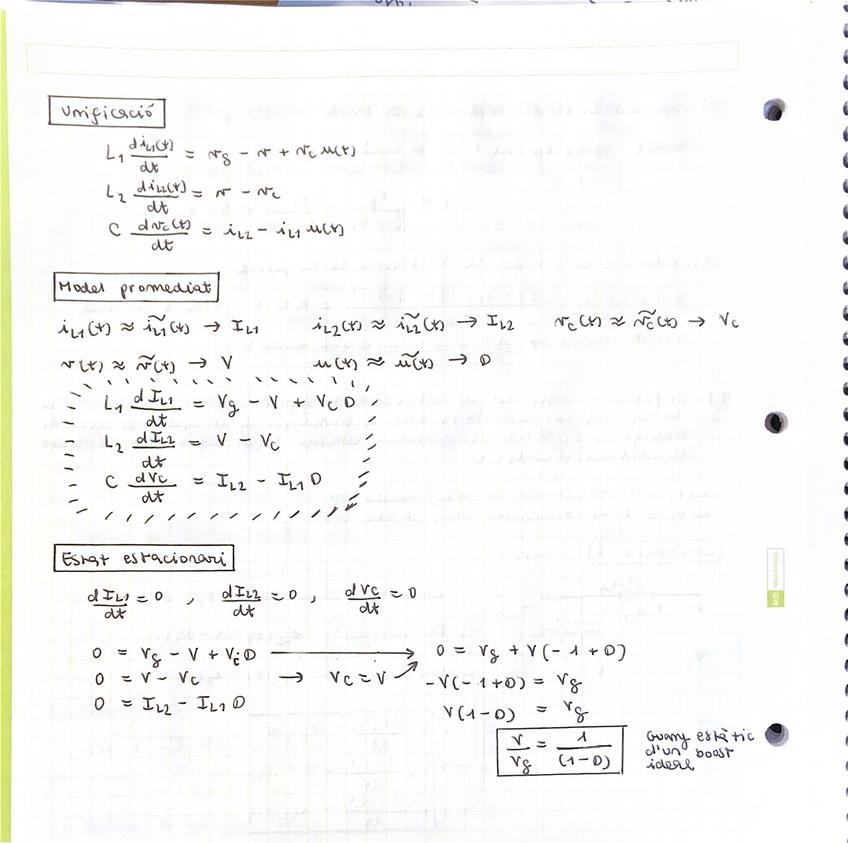 Unificació
L1 diL1(t)/dt = vg - v + vc u(t)
L2 diL2(t)/dt = v - vc
C dvc(t)/dt = iL2 - iL1 u(t)
Model promediat
iL1(t) ≈ ĩL1(t) → IL1 iL2(t) ≈ ĩL2(t) → IL2 vc(t) ≈ ṽc(t) → Vc
v(t) ≈ ṽ(t) → V u(t) ≈ ũ(t) → D
L1 dIL1/dt = Vg - V + Vc D
L2 dIL2/dt = V - Vc
C dVc/dt = IL2 - IL1 D
Estat estacionari
dIL1/dt = 0 , dIL2/dt = 0 , dVc/dt = 0
0 = Vg - V + Vc D → 0 = Vg + V(-1+D)
0 = V - Vc → Vc = V -V(-1+D) = Vg
0 = IL2 - IL1 D V(1-D) = Vg
V/Vg = 1/(1-D) Guany estàtic
d'un boost
ideal